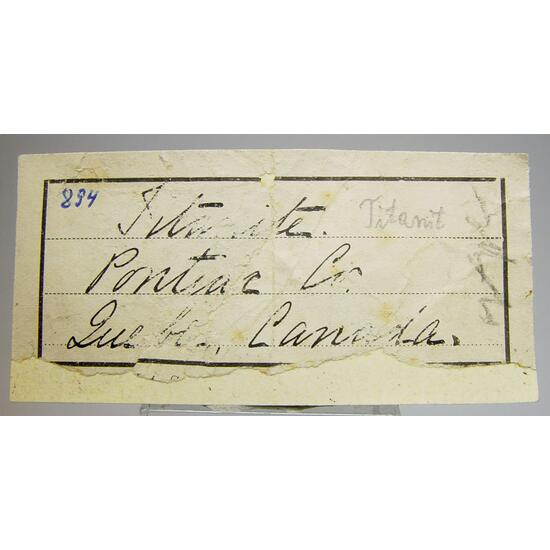 894
Titanite. Titanit
Pontiac Co.
Quebec, Canada.